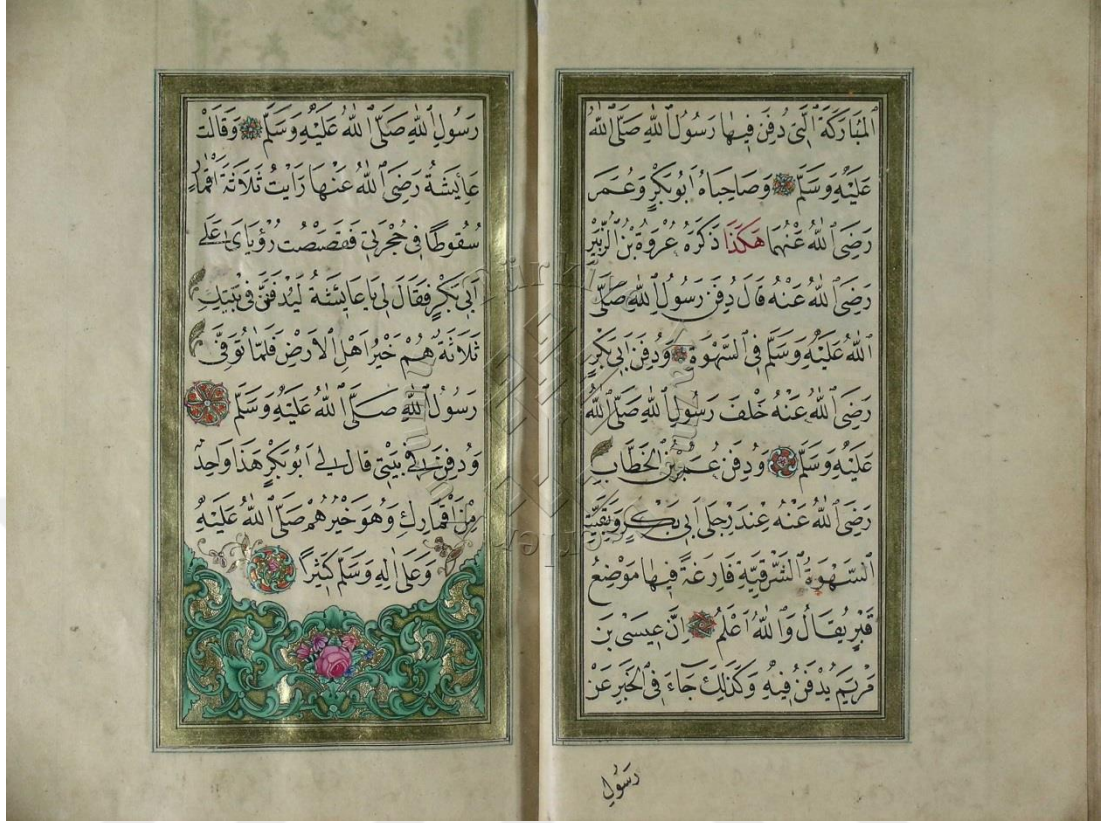 الْمُبَارَكَةَ الَّتِي دُفِنَ فِيهَا رَسُولُ اللهِ صَلَّى اللهُ
عَلَيْهِ وَسَلَّمَ وَصَاحِبَاهُ اَبُو بَكْرٍ وَعُمَرَ
رَضِيَ اللهُ عَنْهُمَا هٰكَذَا ذَكَرَهُ عُرْوَةُ بْنُ الزُّبَيْرِ
رَضِيَ اللهُ عَنْهُ قَالَ دُفِنَ رَسُولُ اللهِ صَلَّى
اللهُ عَلَيْهِ وَسَلَّمَ فِي السَّهْوَةِ وَدُفِنَ اَبِي بَكْرٍ
رَضِيَ اللهُ عَنْهُ خَلْفَ رَسُولِ اللهِ صَلَّى اللهُ
عَلَيْهِ وَسَلَّمَ وَدُفِنَ عُمَرُ بْنُ الْخَطَّابِ
رَضِيَ اللهُ عَنْهُ عِنْدَ رِجْلَيْ اَبِي بَكْرٍ وَبَقِيَتِ
السَّهْوَةُ الشَّرْقِيَّةِ فَارِغَةً فِيهَا مَوْضِعُ
قَبْرٍ يُقَالُ وَاللهُ اَعْلَمُ اِنَّ عِيسَى بْنَ
مَرْيَمَ يُدْفَنُ فِيهِ وَكَذٰلِكَ جَاءَ فِي الْخَبَرِ عَنْ
رَسُولِ
رَسُولِ اللهِ صَلَّى اللهُ عَلَيْهِ وَسَلَّمَ وَقَالَتْ
عَائِشَةُ رَضِيَ اللهُ عَنْهَا رَاَيْتُ ثَلَاثَةَ اَقْمَارٍ
سُقُوطًا فِي حُجْرَتِي فَقَصَصْتُ رُؤْيَايَ عَلٰى
اَبِي بَكْرٍ فَقَالَ لِي يَا عَائِشَةُ لَيُدْفَنَنَّ فِي بَيْتِكِ
ثَلَاثَةٌ هُمْ خَيْرُ اَهْلِ الْاَرْضِ فَلَمَّا تُوُفِّيَ
رَسُولُ اللهِ صَلَّى اللهُ عَلَيْهِ وَسَلَّمَ
وَدُفِنَ فِي بَيْتِي قَالَ لِي اَبُو بَكْرٍ هٰذَا وَاحِدٌ
مِنْ اَقْمَارِكِ وَهُوَ خَيْرُهُمْ صَلَّى اللهُ عَلَيْهِ
وَعَلٰى اٰلِهِ وَسَلَّمَ كَثِيرًا